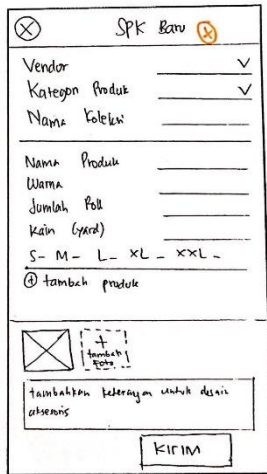 SPK Baru
Vendor
Kategori Produk
Nama Koleksi
Nama Produk
Warna
Jumlah Roll
Kain (yard)
S- M- L- XL- XXL-
+ tambah produk
+
tambah
Foto
tambahkan keterangan untuk desain
aksesoris
KIRIM